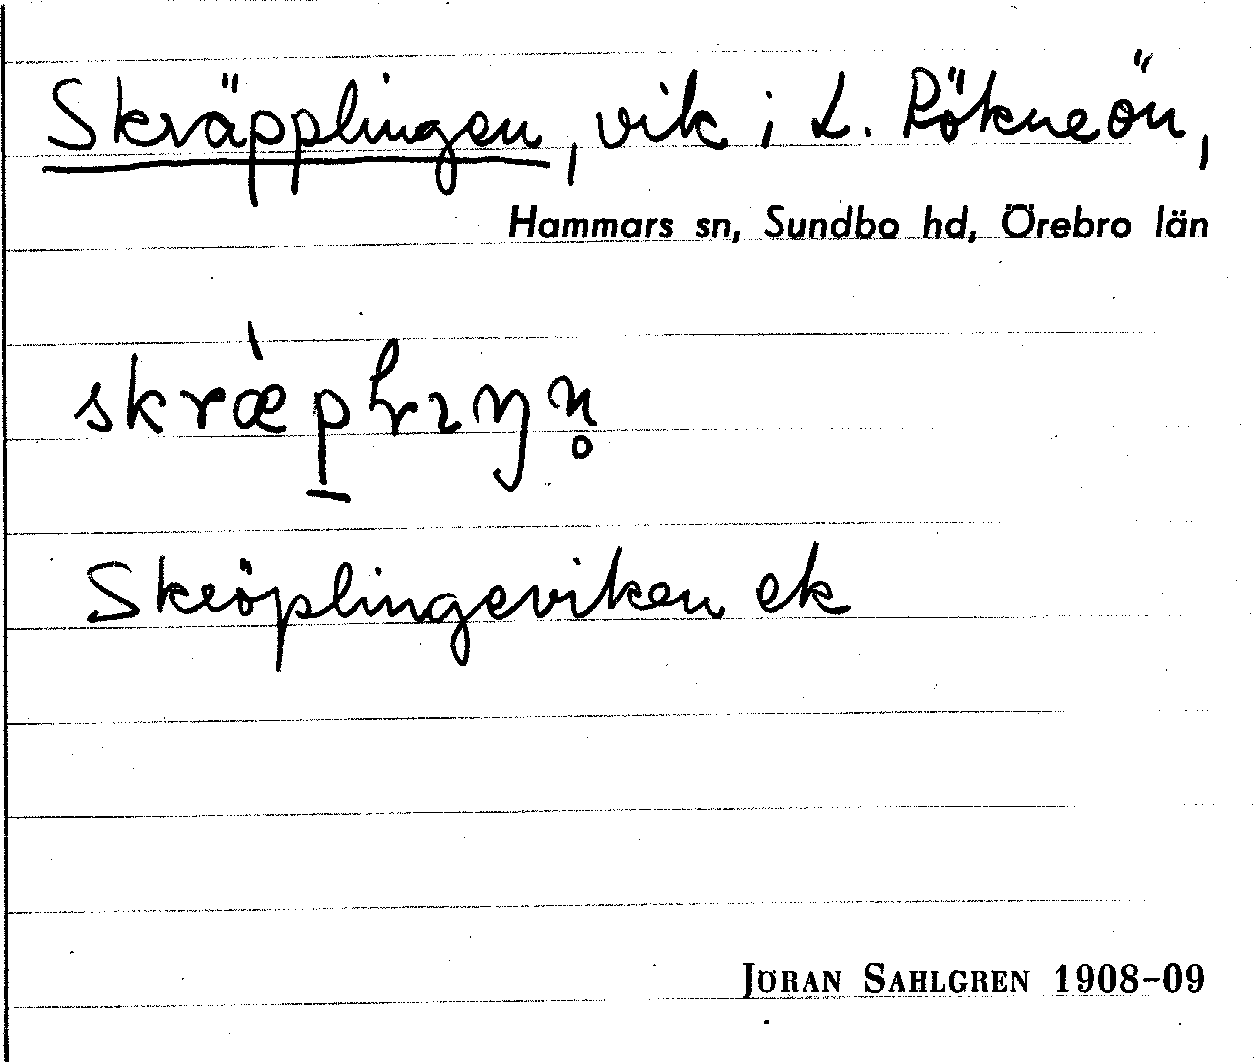 Skräpplingen, vik i L. Rökneön,
Hammars sn, Sundbo hd, Örebro län
skræ̀p̱lıŋn̥
Skröplingeviken ek
JÖRAN SAHLGREN 1908-09